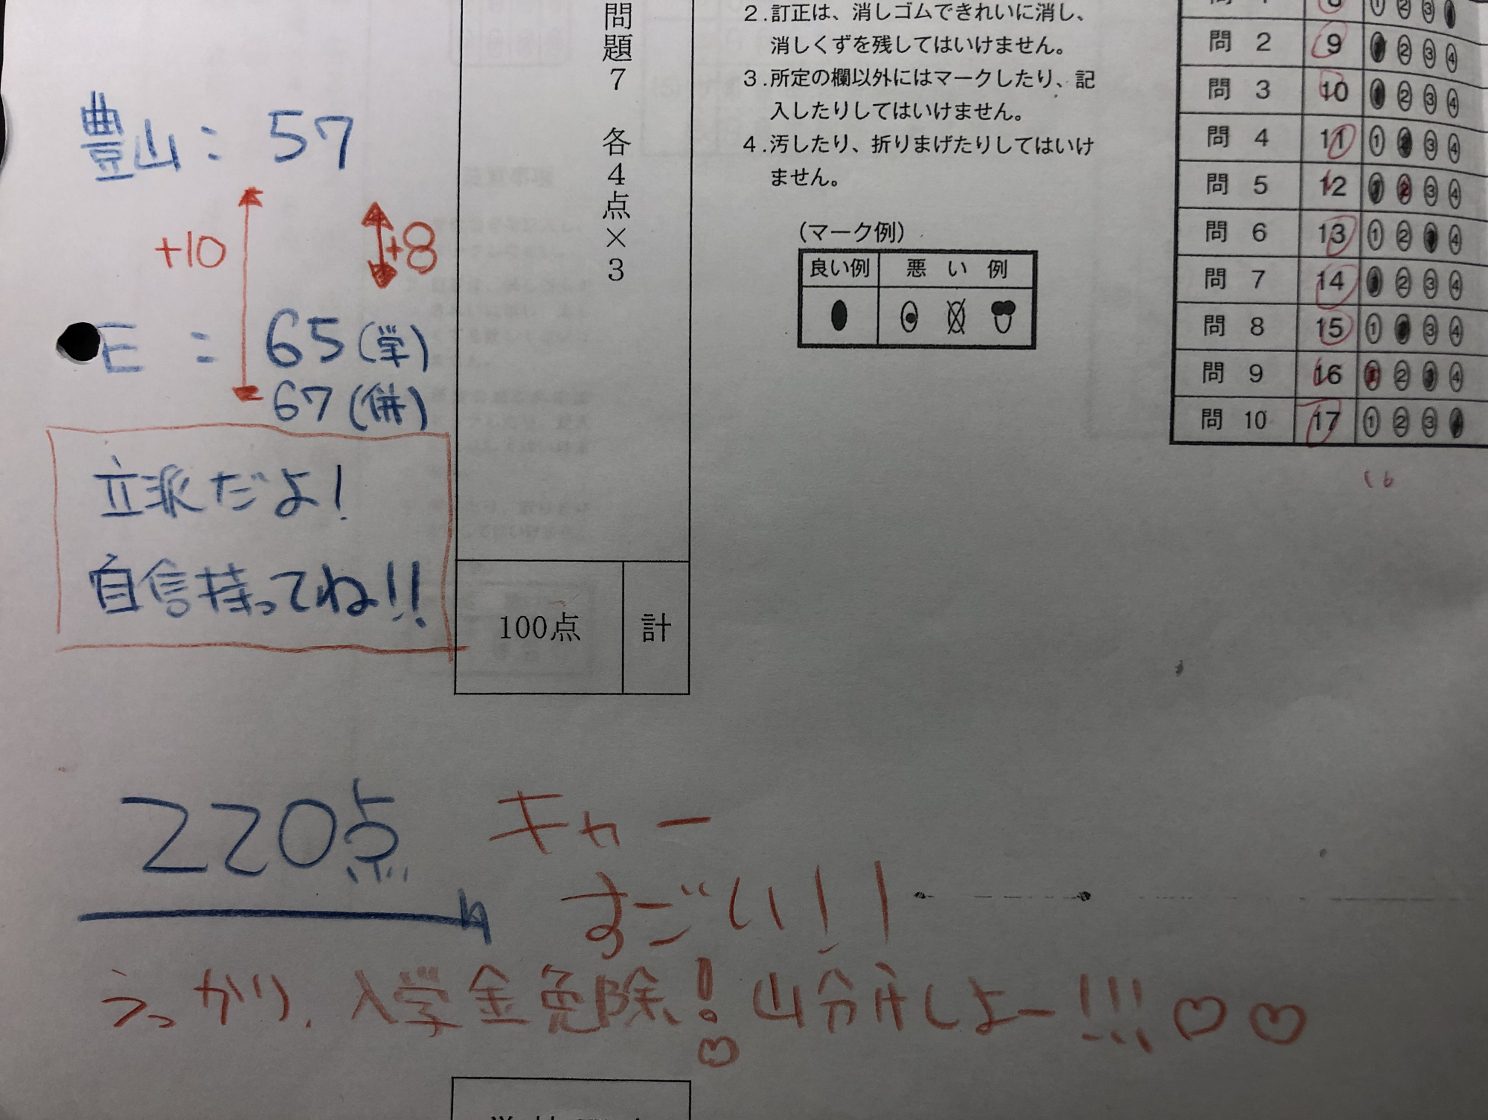 豊山: 57
+10
+8
E : 65(学)
67(併)
立派だよ!
自信持ってね!!
問題7 各4点×3
100点 計
2.訂正は、消しゴムできれいに消し、
消しくずを残してはいけません。
3.所定の欄以外にはマークしたり、記
入したりしてはいけません。
4.汚したり、折りまげたりしてはいけ
ません。
(マーク例)
良い例 悪い例
8 ① ② ③
問 2 9 ② ③ ④
問 3 10 ② ③ ④
問 4 11 ① ③ ④
問 5 12 ③ ④
問 6 13 ① ② ④
問 7 14 ② ③ ④
問 8 15 ① ③ ④
問 9 16 ② ④
問 10 17 ① ② ③
220点
キャー
すごい!!
うっかり、入学金免除!山分けしよー!!!♡♡
♡